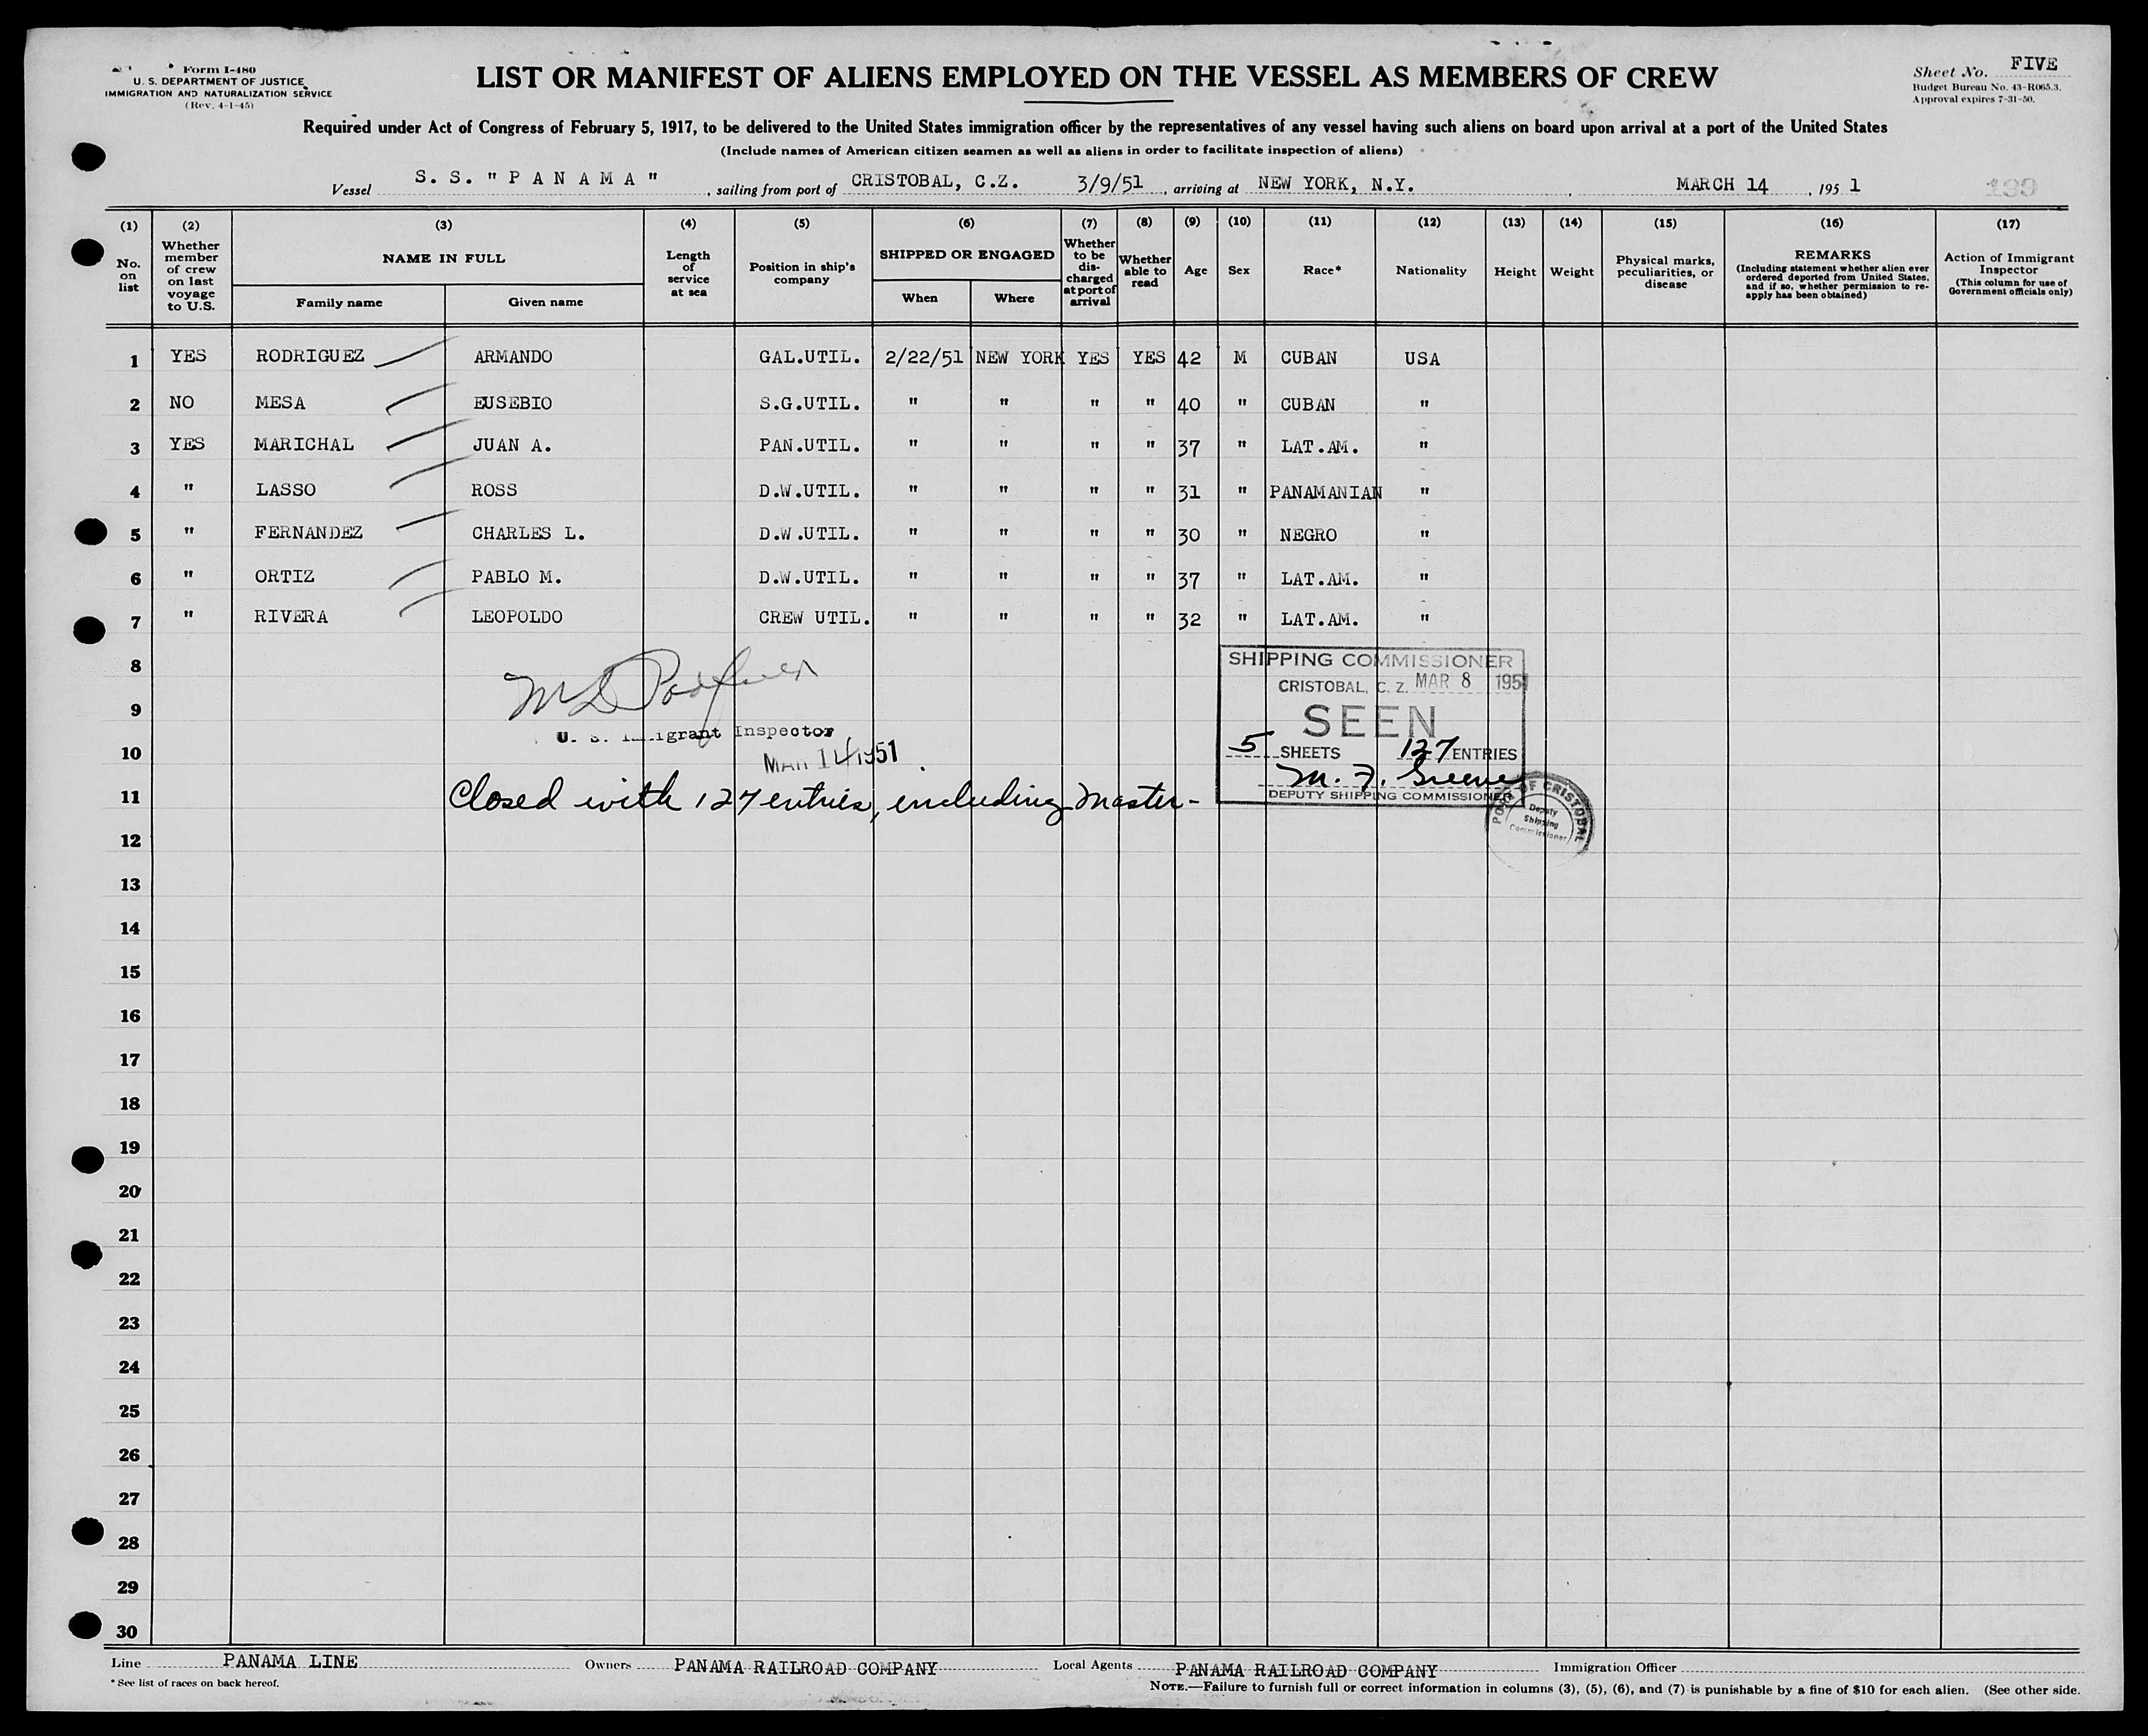 Form I-480
U. S. DEPARTMENT OF JUSTICE
IMMIGRATION AND NATURALIZATION SERVICE
(Rev. 4-1-45)
LIST OR MANIFEST OF ALIENS EMPLOYED ON THE VESSEL AS MEMBERS OF CREW
Sheet No. FIVE
Budget Bureau No. 43-R065.3.
Approval expires 7-31-50.
Required under Act of Congress of February 5, 1917, to be delivered to the United States immigration officer by the representatives of any vessel having such aliens on board upon arrival at a port of the United States
(Include names of American citizen seamen as well as aliens in order to facilitate inspection of aliens)
Vessel S. S. " P A N A M A " , sailing from port of CRISTOBAL, C.Z. 3/9/51 , arriving at NEW YORK, N.Y. , MARCH 14 , 195 1
(1) No. on list
(2) Whether member of crew on last voyage to U.S.
(3) NAME IN FULL
Family name
Given name
(4) Length of service at sea
(5) Position in ship's company
(6) SHIPPED OR ENGAGED
When
Where
(7) Whether to be discharged at port of arrival
(8) Whether able to read
(9) Age
(10) Sex
(11) Race*
(12) Nationality
(13) Height
(14) Weight
(15) Physical marks, peculiarities, or disease
(16) REMARKS (Including statement whether alien ever ordered deported from United States, and if so, whether permission to re-apply has been obtained)
(17) Action of Immigrant Inspector (This column for use of Government officials only)
1 YES RODRIGUEZ ARMANDO GAL.UTIL. 2/22/51 NEW YORK YES YES 42 M CUBAN USA
2 NO MESA EUSEBIO S.G.UTIL. " " " " 40 " CUBAN "
3 YES MARICHAL JUAN A. PAN.UTIL. " " " " 37 " LAT.AM. "
4 " LASSO ROSS D.W.UTIL. " " " " 31 " PANAMANIAN "
5 " FERNANDEZ CHARLES L. D.W.UTIL. " " " " 30 " NEGRO "
6 " ORTIZ PABLO M. D.W.UTIL. " " " " 37 " LAT.AM. "
7 " RIVERA LEOPOLDO CREW UTIL. " " " " 32 " LAT.AM. "
8
9
10
11
U. S. Immigrant Inspector
MAR 14 1951
Closed with 127 entries, including Master-
SHIPPING COMMISSIONER
CRISTOBAL, C. Z. MAR 8 1951
SEEN
5 SHEETS 127 ENTRIES
M. F. Greene
DEPUTY SHIPPING COMMISSIONER
PORT OF CRISTOBAL
Deputy
Shipping
Commissioner
12
13
14
15
16
17
18
19
20
21
22
23
24
25
26
27
28
29
30
Line PANAMA LINE Owners PANAMA RAILROAD COMPANY Local Agents PANAMA RAILROAD COMPANY Immigration Officer
* See list of races on back hereof.
NOTE.—Failure to furnish full or correct information in columns (3), (5), (6), and (7) is punishable by a fine of $10 for each alien. (See other side.